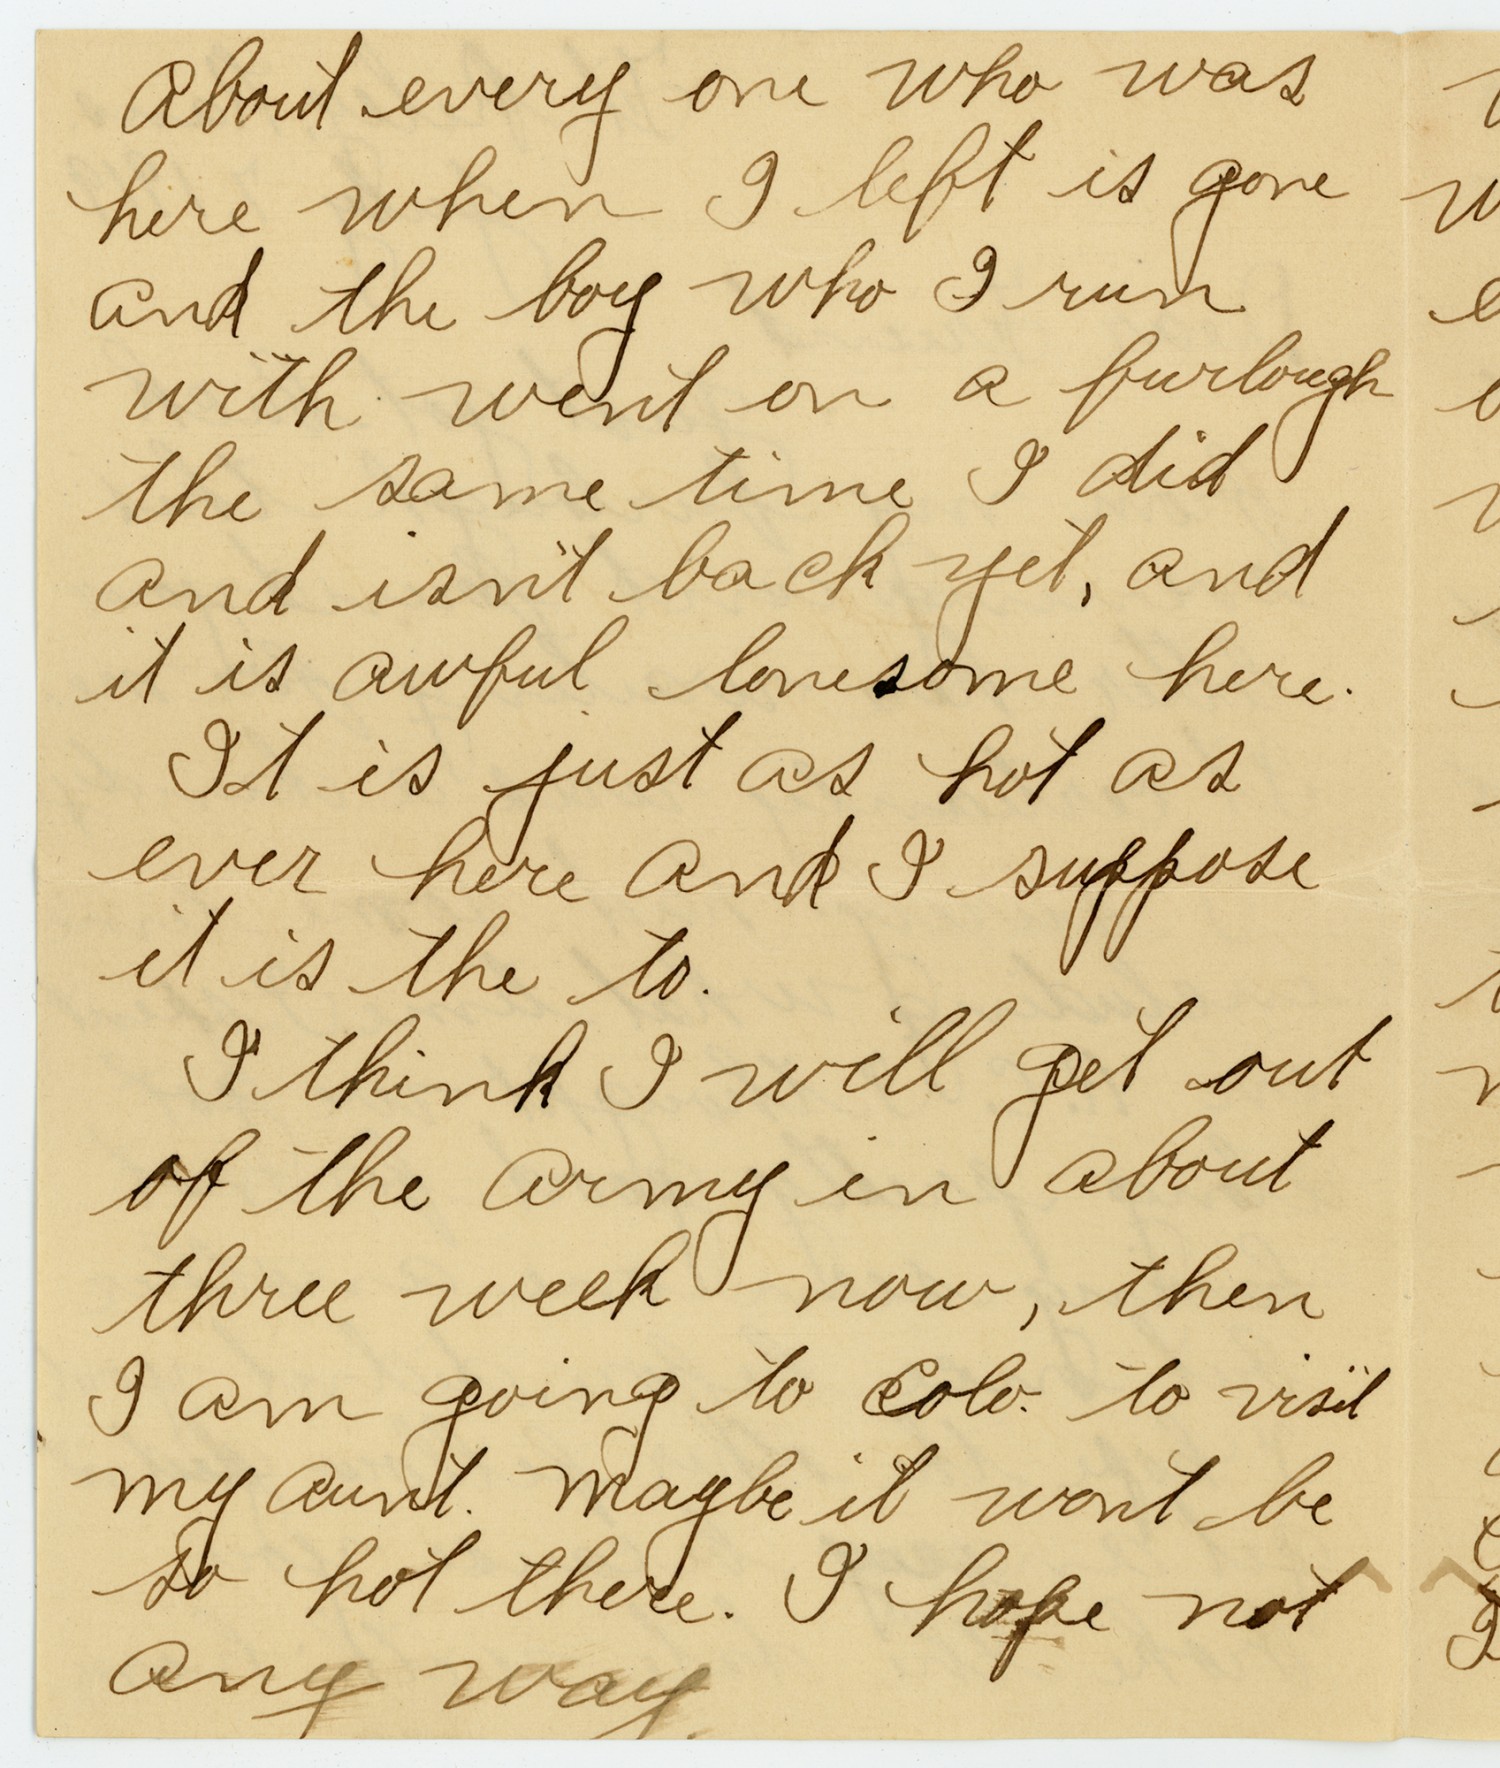 About every one who was
here when I left is gone
and the boy who I run
with went on a furlough
the same time I did
and isn't back yet, and
it is awful lonesome here.
It is just as hot as
ever here and I suppose
it is the to.
I think I will get out
of the army in about
three week now, then
I am going to Colo. to visit
my aunt. maybe it wont be
so hot there. I hope not
any way.